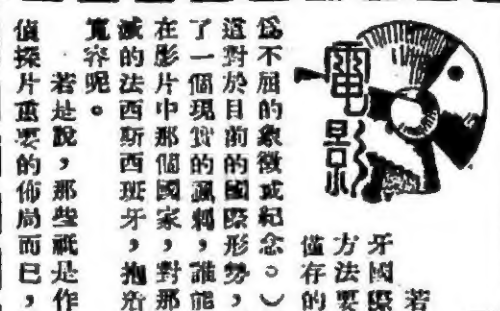 電影
若
牙國際
方法要
僅存的
爲不屈的象徵或紀念。)
這對於目前的國際形勢,
了一個現實的諷刺,誰能
在影片中那個國家,對那
滅的法西斯西班牙,抱
寬容呢。
若是說,那些祇是作
偵探片重要的佈局而已,